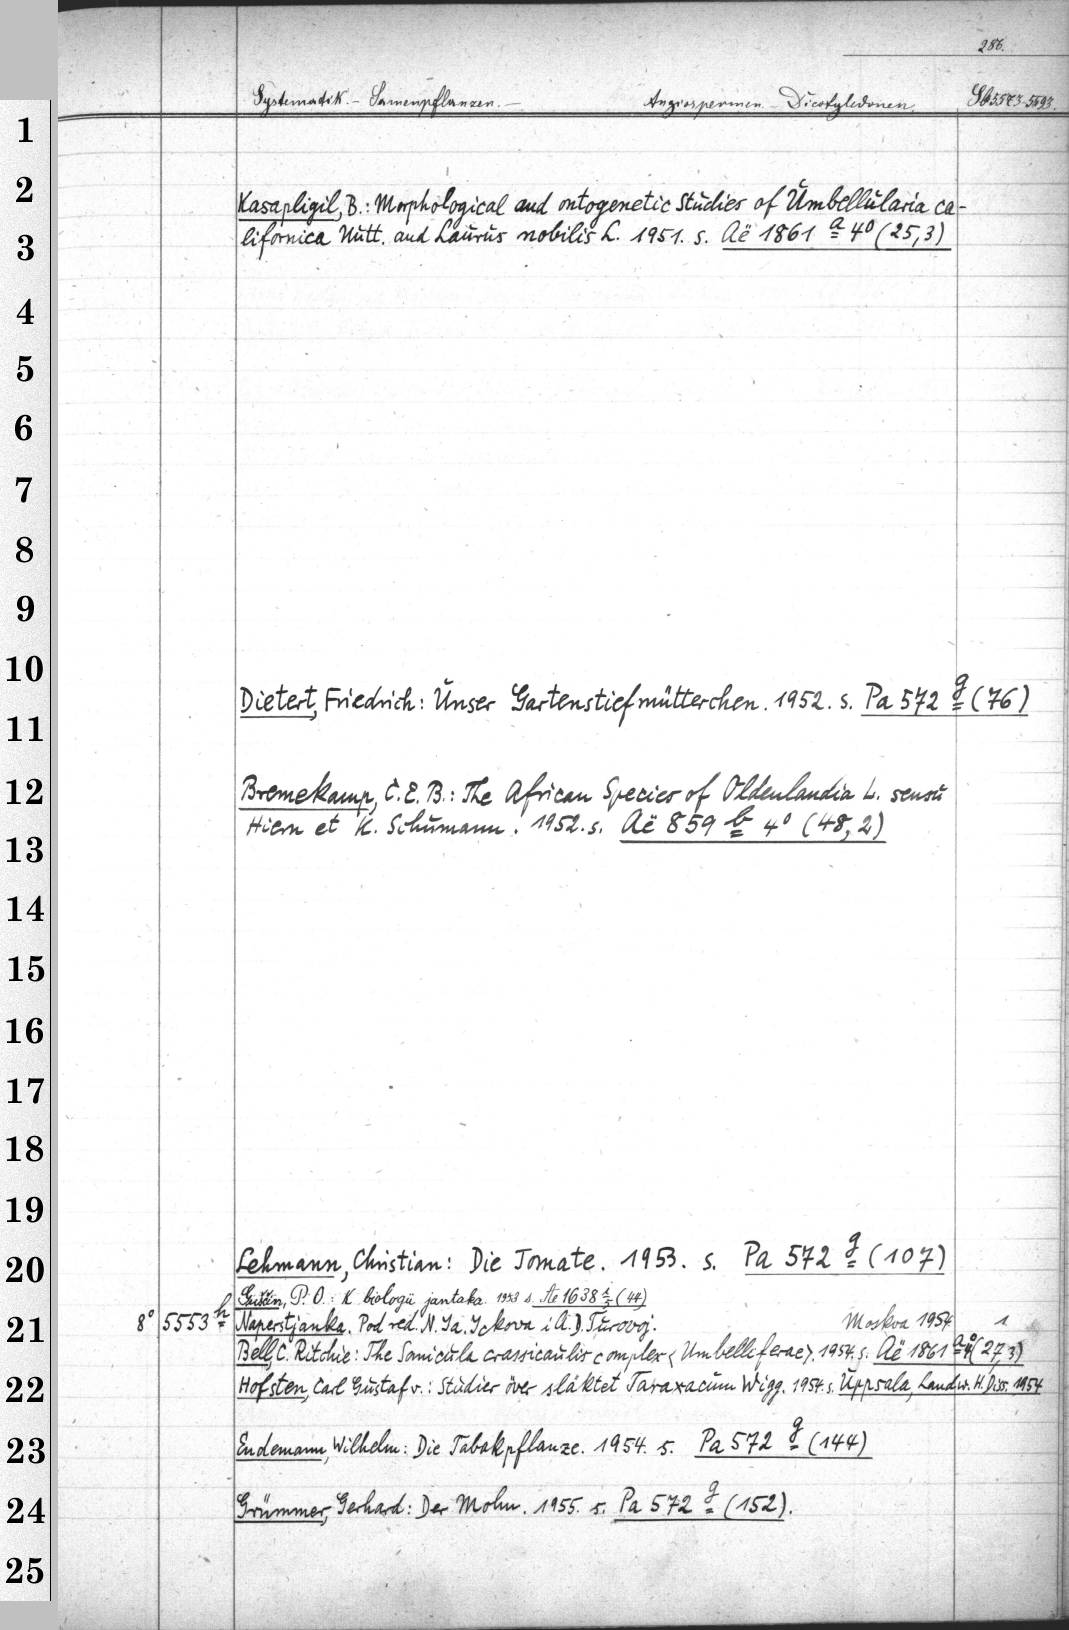 286.
Systematik. - Samenpflanzen. - Angiospermen. - Dicotyledonen. Sb 5573-5593.
1
2
Kasapligil, B.: Morphological and ontogenetic Studies of Umbellularia ca-
3
lifornica Nutt. and Laurus nobilis L. 1951. s. Aë 1861 a 4° (25,3)
4
5
6
7
8
9
10
Dietert, Friedrich: Unser Gartenstiefmütterchen. 1952. s. Pa 572 g (76)
11
12
Bremekamp, C. E. B.: The African Species of Oldenlandia L. sensu
Hiern et K. Schumann. 1952. s. Aë 859 b 4° (48, 2)
13
14
15
16
17
18
19
20
Lehmann, Christian: Die Tomate. 1953. s. Pa 572 g (107)
P. O.: K biologii jantaka. 1953 s. Ae 1638 (44)
21
8° 5553 h Naperstjanka. Pod red. N. Ja. Ickova i A. D. Turovoj. Moskva 1954 1
Bell, C. Ritchie: The Sanicula crassicaulis complex (Umbelliferae). 1954. s. Aë 1861 a 4° (27,3)
22
Hofsten, Carl Gustaf v.: Studier över släktet Taraxacum Wigg. 1954. s. Uppsala, Landw. H. Diss. 1954
23
Endemann, Wilhelm: Die Tabakpflanze. 1954. s. Pa 572 g (144)
24
Grümmer, Gerhard: Der Mohn. 1955. s. Pa 572 g (152).
25